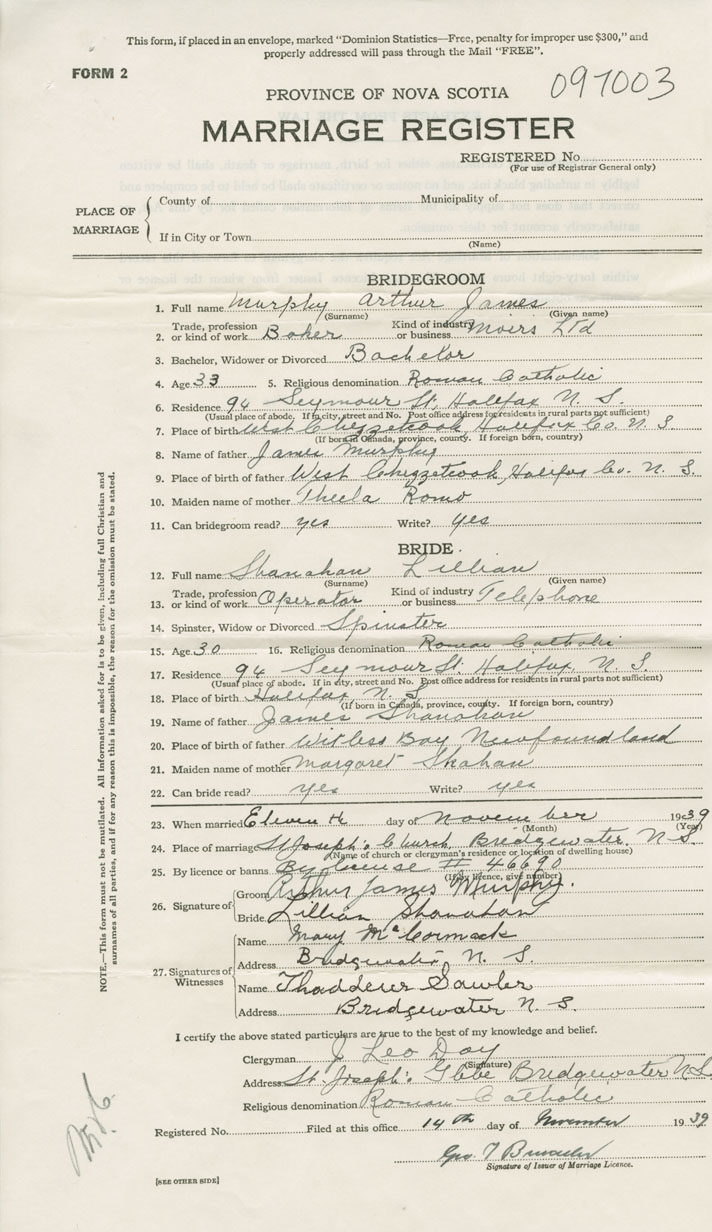 This form, if placed in an envelope, marked “Dominion Statistics—Free, penalty for improper use $300,” and
properly addressed will pass through the Mail “FREE”.
FORM 2
097003
PROVINCE OF NOVA SCOTIA
MARRIAGE REGISTER
REGISTERED No.
(For use of Registrar General only)
PLACE OF MARRIAGE
County of Municipality of
If in City or Town
(Name)
BRIDEGROOM
1. Full name Murphy Arthur James
(Surname) (Given name)
2. Trade, profession or kind of work Baker Kind of industry or business Moirs Ltd
3. Bachelor, Widower or Divorced Bachelor
4. Age 33 5. Religious denomination Roman Catholic
6. Residence 94 Seymour St, Halifax N. S.
(Usual place of abode. If in city, street and No. Post office address for residents in rural parts not sufficient)
7. Place of birth West Chezzetcook, Halifax Co. N. S
(If born in Canada, province, county. If foreign born, country)
8. Name of father James Murphy
9. Place of birth of father West Chezzetcook, Halifax Co. N. S.
10. Maiden name of mother Romo
11. Can bridegroom read? yes Write? yes
BRIDE.
12. Full name Shanahan Lillian
(Surname) (Given name)
13. Trade, profession or kind of work Operator Kind of industry or business Telephone
14. Spinster, Widow or Divorced Spinster
15. Age 30 16. Religious denomination Roman Catholic
17. Residence 94 Seymour St. Halifax N. S.
(Usual place of abode. If in city, street and No. Post office address for residents in rural parts not sufficient)
18. Place of birth Halifax N. S.
(If born in Canada, province, county. If foreign born, country)
19. Name of father James Shanahan
20. Place of birth of father Witless Bay Newfoundland
21. Maiden name of mother Margaret
22. Can bride read? yes Write? yes
23. When married Eleventh day of November 1939
(Month) (Year)
24. Place of marriage St Joseph's Church Bridgewater N S
(Name of church or clergyman's residence or location of dwelling house)
25. By licence or banns By license # 46690
(If by licence, give number)
26. Signature of
Groom Arthur James Murphy.
Bride Lillian Shanahan
27. Signatures of Witnesses
Name Mary McCormack
Address Bridgewater N. S.
Name Sawler
Address Bridgewater N. S.
I certify the above stated particulars are true to the best of my knowledge and belief.
Clergyman J Leo Day
(Signature)
Address St. Joseph's Glebe Bridgewater N S
Religious denomination Roman Catholic
Registered No. Filed at this office 14th day of November 1939
Geo. T
Signature of Issuer of Marriage Licence.
[SEE OTHER SIDE]
NOTE.—This form must not be mutilated. All information asked for is to be given, including full Christian and
surnames of all parties, and if for any reason this is impossible, the reason for the omission must be stated.